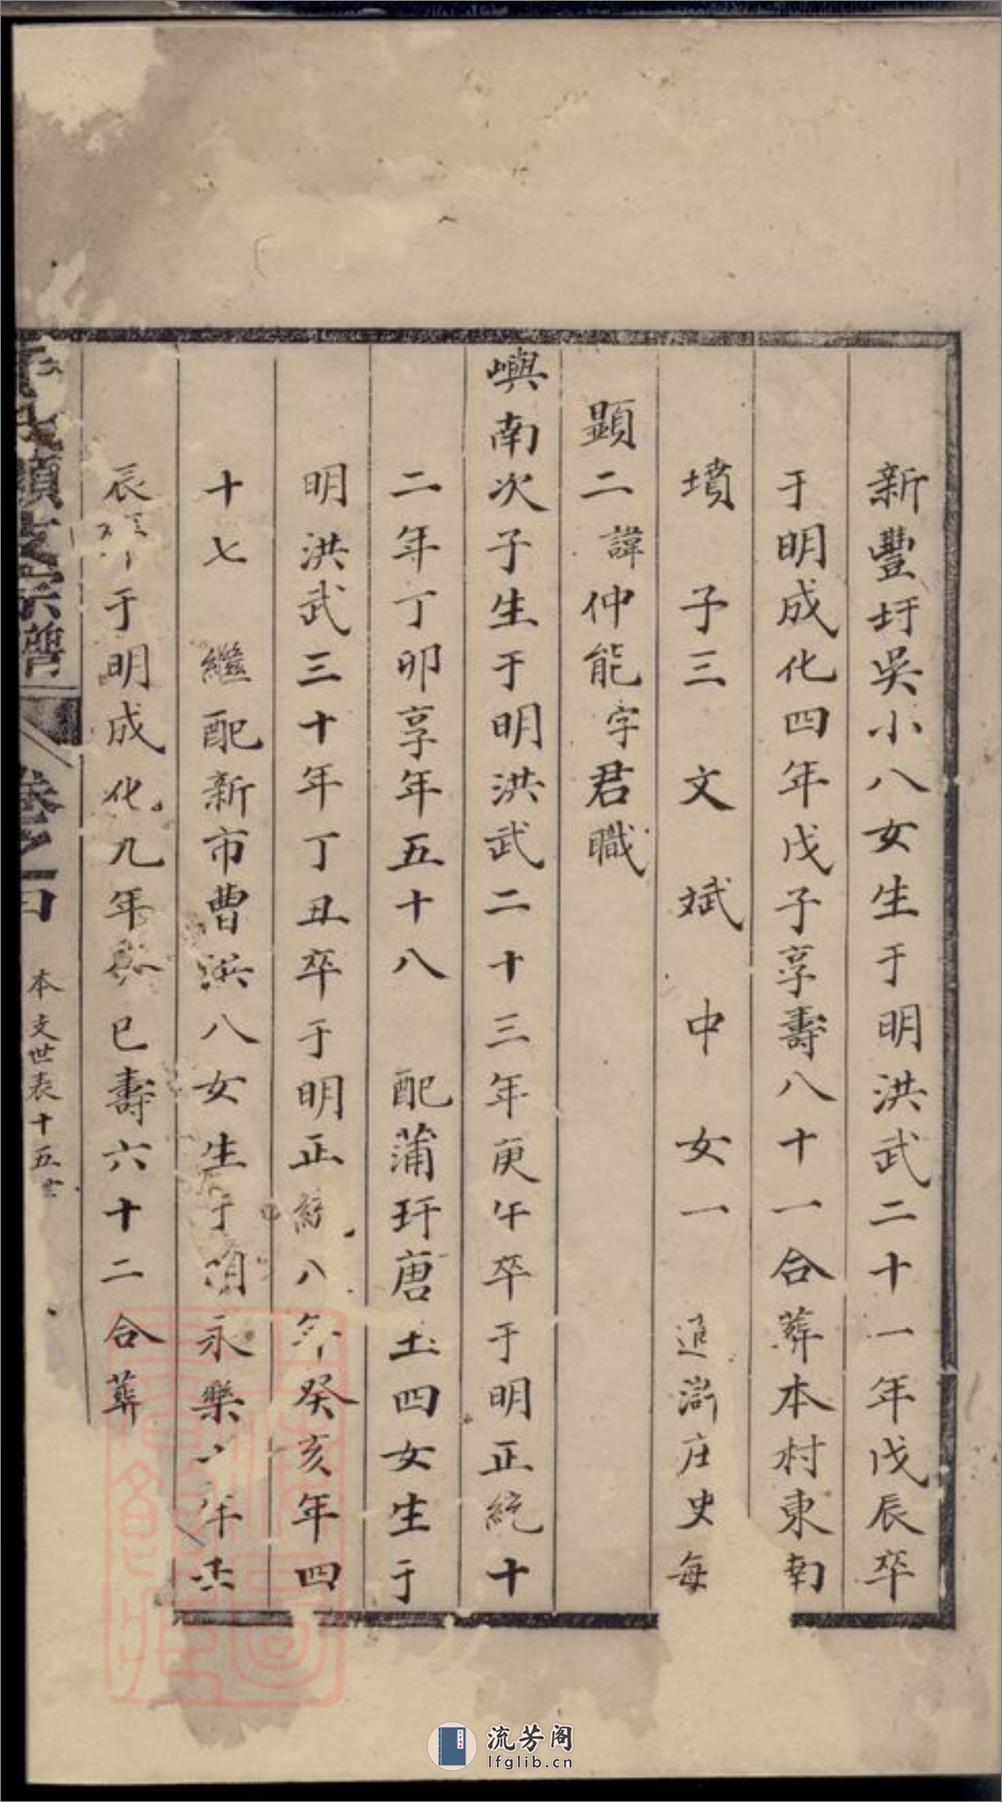 新豐圩吳小八女生于明洪武二十一年戊辰卒
于明成化四年戊子享壽八十一合葬本村東南
墳 子三 文 斌 中 女一 適滸庄史每
顯二諱仲能字君職
嶼南次子生于明洪武二十三年庚午卒于明正統十
二年丁卯享年五十八 配蒲玗唐土四女生于
明洪武三十年丁丑卒于明正統八年癸亥年四
十七 繼配新市曹洪八女生于明永樂年
辰卒于明成化九年癸巳壽六十二合葬
支宗譜
卷之
本支世表十五世
流芳阁
lfglib.cn